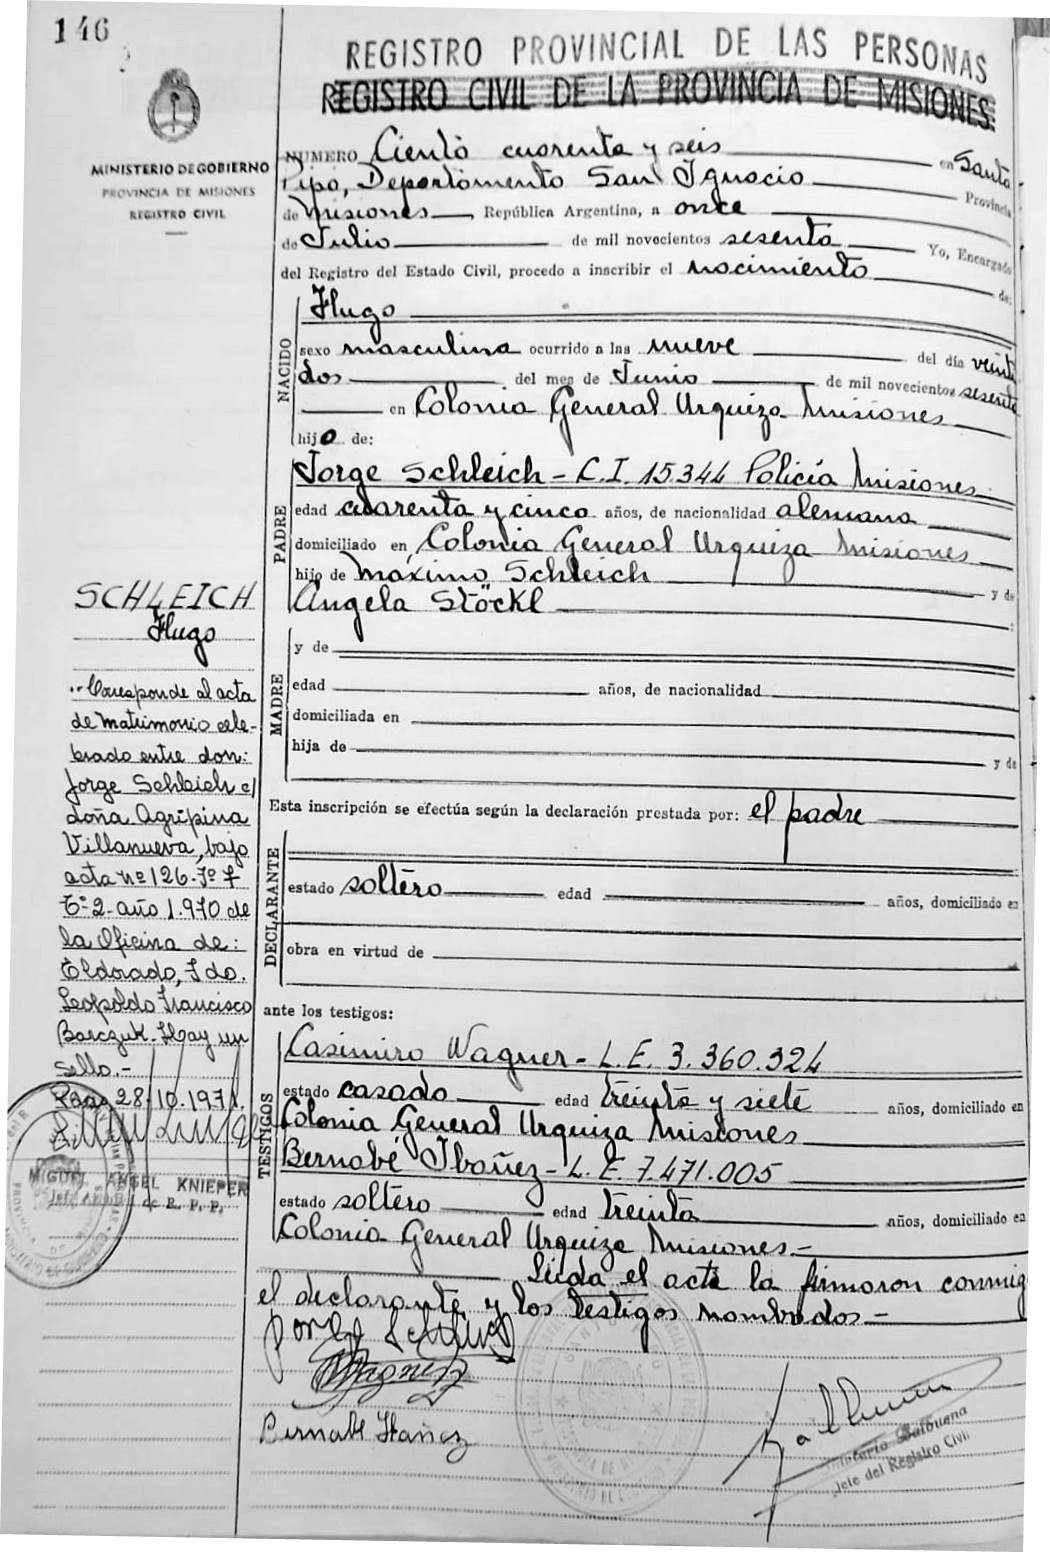 146
REGISTRO PROVINCIAL DE LAS PERSONAS
REGISTRO CIVIL DE LA PROVINCIA DE MISIONES
MINISTERIO DE GOBIERNO
PROVINCIA DE MISIONES
REGISTRO CIVIL
NUMERO Ciento cuarenta y seis en Santo
Pipó, Departamento San Ignacio Provincia
de Misiones, República Argentina, a once
de Julio de mil novecientos sesenta Yo, Encargado
del Registro del Estado Civil, procedo a inscribir el nacimiento de:
NACIDO
Hugo
sexo masculina ocurrido a las nueve del día veinti
dos del mes de Junio de mil novecientos sesenta
en Colonia General Urquiza Misiones
hijo de:
PADRE
Jorge Schleich - C.I. 15.344 Policía Misiones
edad cuarenta y cinco años, de nacionalidad alemana
domiciliado en Colonia General Urquiza Misiones
hijo de Máximo Schleich y de
Angela Stöckl :
MADRE
y de
edad años, de nacionalidad
domiciliada en
hija de y de
Esta inscripción se efectúa según la declaración prestada por: el padre
DECLARANTE
estado soltero edad años, domiciliado en
obra en virtud de
ante los testigos:
TESTIGOS
Casimiro Wagner - L.E. 3.360.324
estado casado edad treinta y siete años, domiciliado en
Colonia General Urquiza Misiones
Bernabé Ibañez - L.E. 7.471.005
estado soltero edad treinta años, domiciliado en
Colonia General Urquiza Misiones -
Leida el acta la firmaron conmigo
el declarante y los testigos nombrados -
Wagner
Bernabé Ibañez
Balbuena
Jefe del Registro Civil
SCHLEICH
Hugo
Corresponde al acta
de matrimonio cele-
brado entre don:
Jorge Schleich c/
doña Agripina
Villanueva, bajo
acta nº 126. Fº 7
Tº 2 año 1.970 de
la Oficina de:
Eldorado, Fdo.
Leopoldo Francisco
Barczuk. Hay un
sello.-
Pdas 28/10.1971.
MIGUEL ANGEL KNIEPER
de R. P. P.